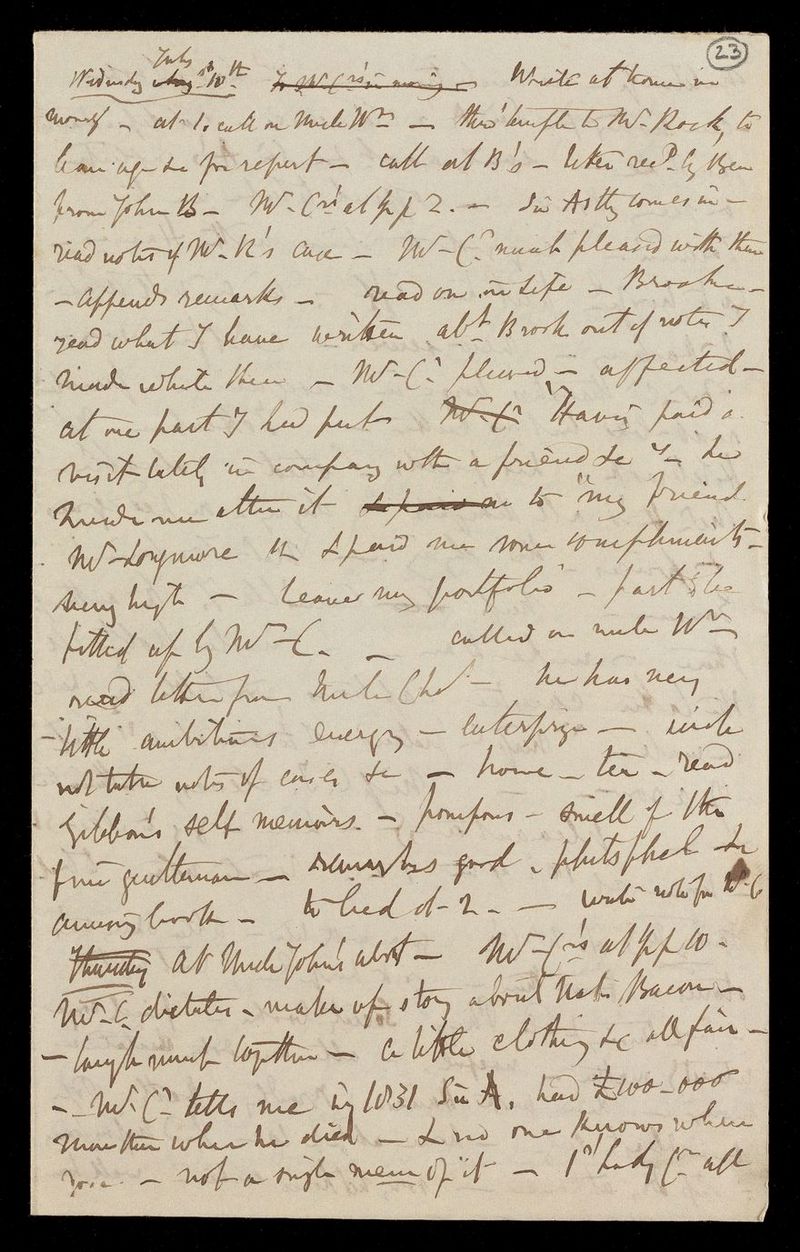 23
July
Wednesday 10th Write at home in
morng – at 1. call on Uncle Wm –
for report – call at B's – letter recd. by Ben
from John B – Mr. C's at ½ p 2. – Sir Astley comes in –
read notes of Mr. R's case – Mr. C. much pleased with them
– appends remarks – read on in Life –
read what I have written abt. Brook out of notes I
made while there – Mr. C. pleased – affected –
at one part I had put Mr. C "Having paid a
visit lately in company with a friend &c" – he
made me alter it to "my friend
Mr. Longmore" & paid me some compliments –
very high – leave my portfolio – part to be
filled up by Mr. C. – called on Uncle Wm
read letter from Uncle Chas. – he has very
little ambitious energy – enterprize –
not take notes of cases &c – home – tea – read
Gibbon's self memoirs. – pompous – smell of the
fine gentleman – good, &c
amusing book – to bed at 2. – write note for Mr. C
Thursday At Uncle John's abt – Mr. C's at ½ p 10 –
Mr. C. dictates – makes up story about Bacon –
– laugh much together – a little clothing &c all fair –
– Mr. C. tells me in 1831 Sir A. had £100-000
more than when he died – & no one knows where
gone – not a single mem of it – 1st Lady C. all